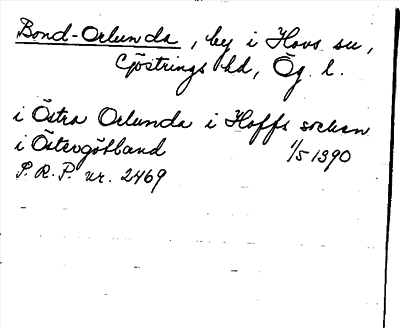 Bond-Orlunda, by i Hovs sn,
Göstrings hd, Ög. l.
i Östra Orlunda i Hoffs socken
i Östergötland 1/5 1390
P.R.P. nr. 2469